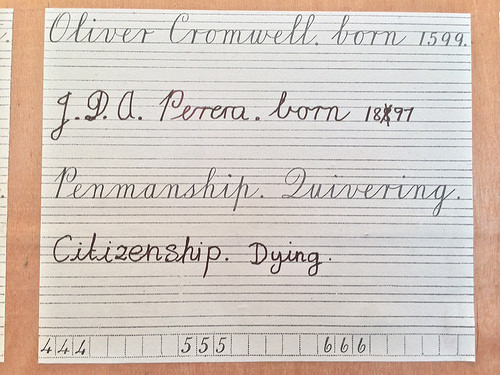 Oliver Cromwell. born 1599.
J. D. A. Perera. born 1897
Penmanship. Quivering.
Citizenship. Dying.
444 555 666